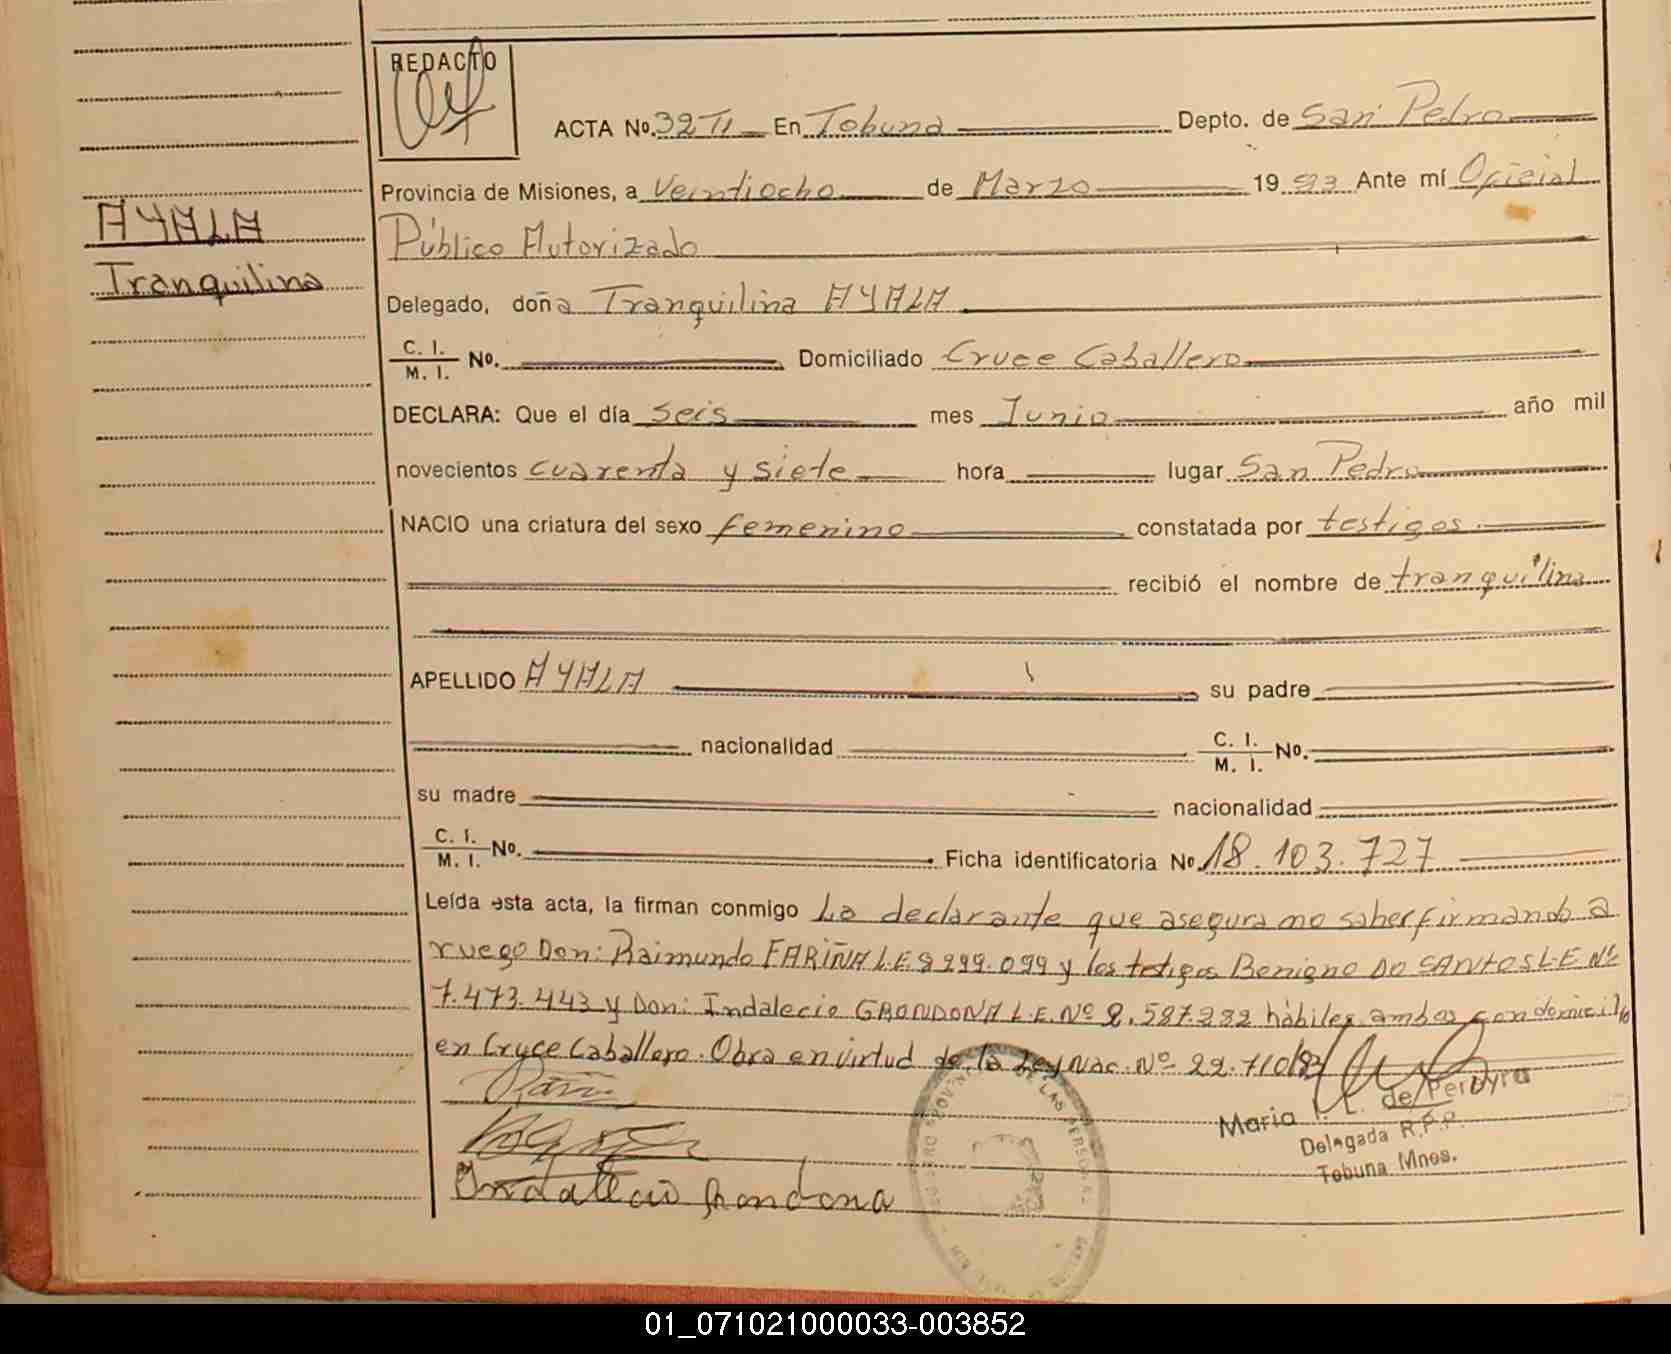 REDACTO
ACTA No. 32 TI En Tobuna Depto. de San Pedro
Provincia de Misiones, a Veintiocho de Marzo 19 83 Ante mí Oficial
AYALA
Público Autorizado
Tranquilina
Delegado, doña Tranquilina AYALA
C. I. M. I. No. Domiciliado Cruce Caballero
DECLARA: Que el día Seis mes Junio año mil
novecientos cuarenta y siete hora lugar San Pedro
NACIO una criatura del sexo femenino constatada por testigos
recibió el nombre de tranquilina
APELLIDO AYALA su padre
nacionalidad C. I. M. I. No.
su madre nacionalidad
C. I. M. I. No. Ficha identificatoria No 18.103.727
Leída esta acta, la firman conmigo La declarante que asegura no saber firmando a
ruego Don: Raimundo FARIÑA L.E 8 299.099 y los testigos Benigno DO SANTOS L.E Nº
7.473.443 y Don: Indalecio GRONDONA L.E. Nº 8.587.282 hábiles ambos con domicilio
en Cruce Caballero. Obra en virtud de la Ley Nac. Nº 22.710/83
Maria L. de Pereyra
Delegada R.P.P.
Tobuna Mnes.
Indalecio Grondona
01_071021000033-003852